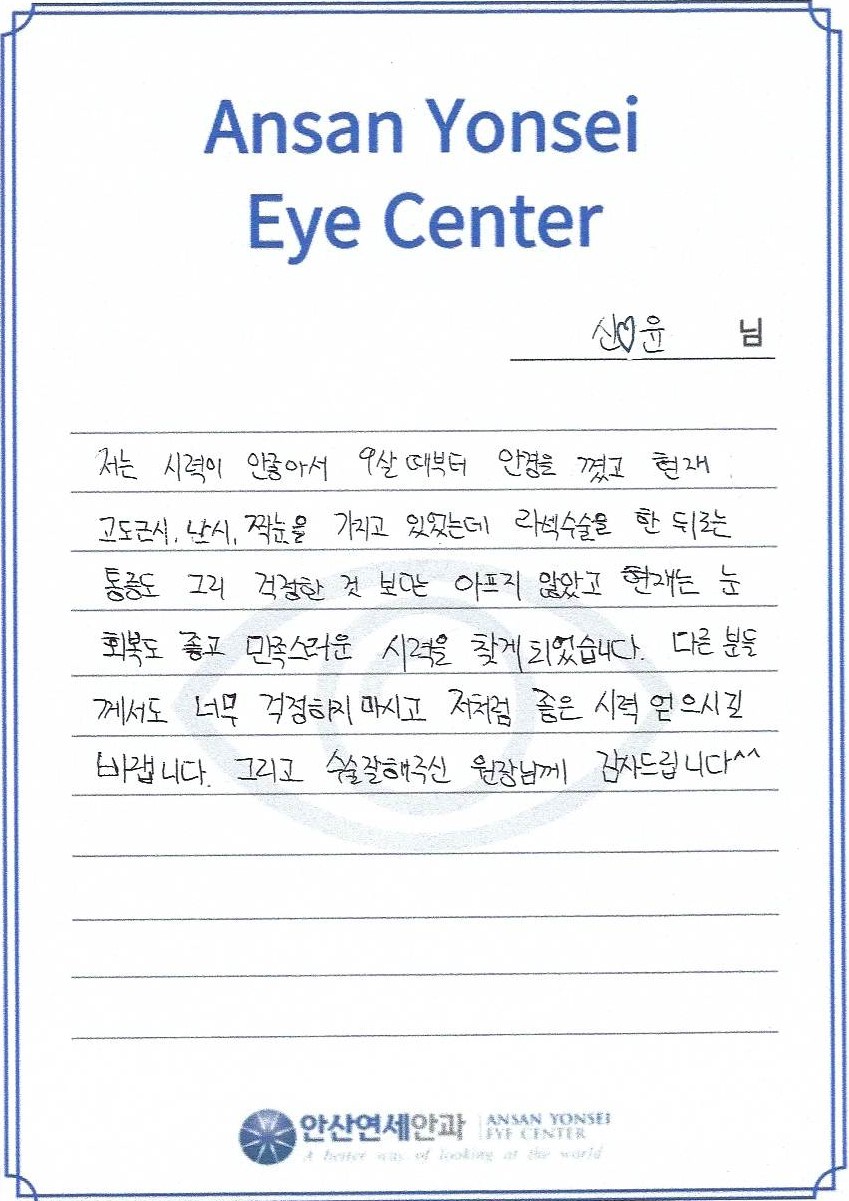 Ansan Yonsei
Eye Center
신♡윤 님
저는 시력이 안좋아서 9살 때부터 안경을 꼈고 현재
고도근시, 난시, 짝눈을 가지고 있었는데 라섹수술을 한 뒤로는
통증도 그리 걱정한 것 보다는 아프지 않았고 현재는 눈
회복도 좋고 만족스러운 시력을 찾게 되었습니다. 다른 분들
께서도 너무 걱정하지 마시고 저처럼 좋은 시력 얻으시길
바랍니다. 그리고 수술잘해주신 원장님께 감사드립니다^^
안산연세안과 ANSAN YONSEI
EYE CENTER
A better way of looking at the world